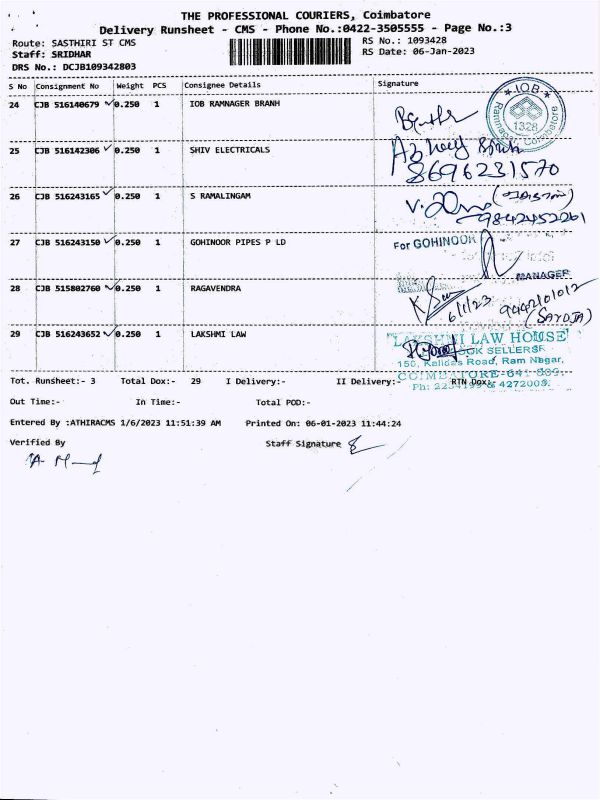 THE PROFESSIONAL COURIERS, Coimbatore
Delivery Runsheet - CMS - Phone No.:0422-3505555 - Page No.:3
Route: SASTHIRI ST CMS RS No.: 1093428
Staff: SRIDHAR RS Date: 06-Jan-2023
DRS No.: DCJB109342803
S No Consignment No Weight PCS Consignee Details Signature
24 CJB 516140679 0.250 1 IOB RAMNAGER BRANH
IOB
Ramnagar, Coimbatore
1328
25 CJB 516142306 0.250 1 SHIV ELECTRICALS
8696231570
26 CJB 516243165 0.250 1 S RAMALINGAM
9842452261
27 CJB 516243150 0.250 1 GOHINOOR PIPES P LD
For GOHINOOR
MANAGER
28 CJB 515802760 0.250 1 RAGAVENDRA
6/1/23 9442101012
(SAROJA)
29 CJB 516243652 0.250 1 LAKSHMI LAW
LAKSHMI LAW HOUSE
BOOK SELLERS
150, Kalidas Road, Ram Nagar,
COIMBATORE-641 009.
Tot. Runsheet:- 3 Total Dox:- 29 I Delivery:- II Delivery:- RTN Dox:-
Out Time:- In Time:- Total POD:-
Entered By :ATHIRACMS 1/6/2023 11:51:39 AM Printed On: 06-01-2023 11:44:24
Verified By Staff Signature